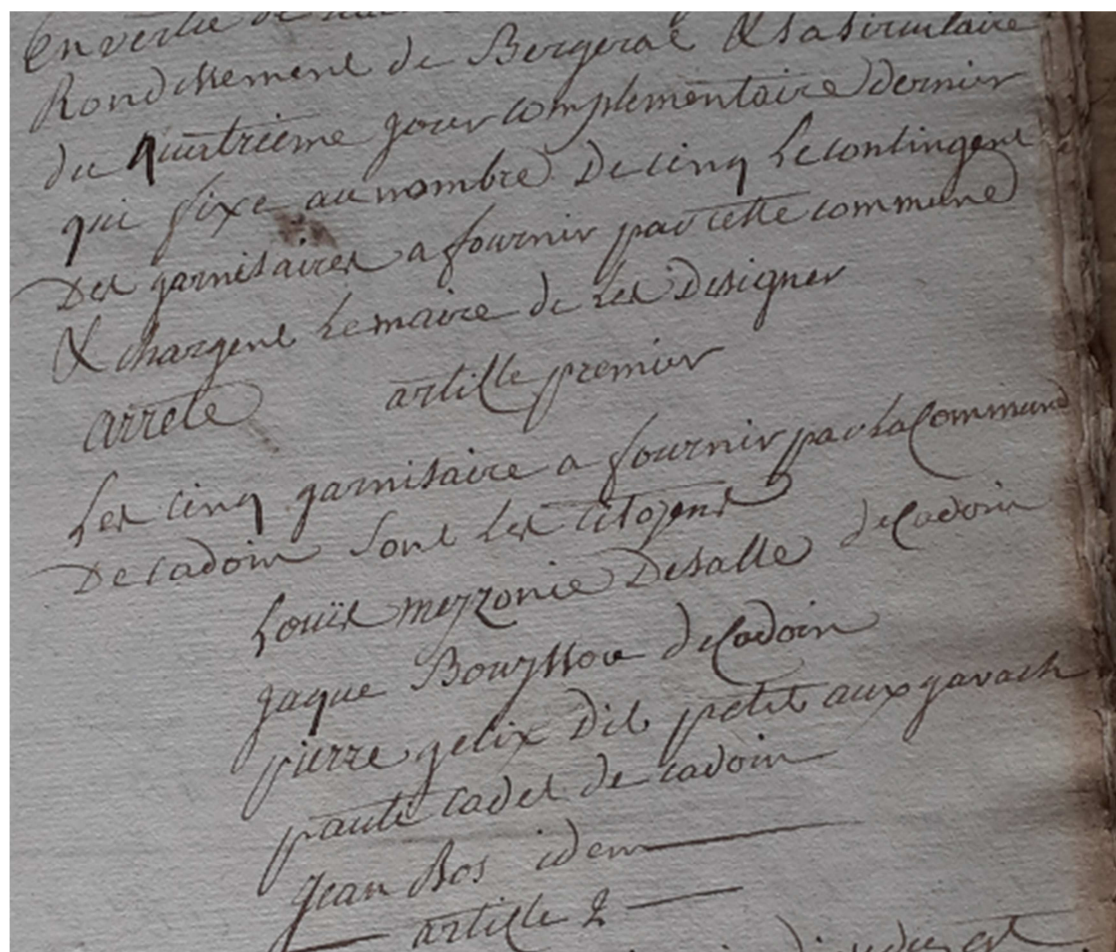 En vertu de
Rondissement de Bergerac & sa sirculaire
du quatrieme jour complementaire dernier
qui fixe au nombre De cinq Le contingent
Des garnisaires a fournir par cette commune
& chargent Le maire de Les Designer
arrete article premier
Les cinq garnisaire a fournir par La Commune
De cadoin sont Les citoyens
Louis meyzonie Desalle de Cadoin
jaque Bouyssou de Cadoin
pierre gelix Dit petit aux gavach
pauté cadet de cadoin
Jean Bos idem
article 2